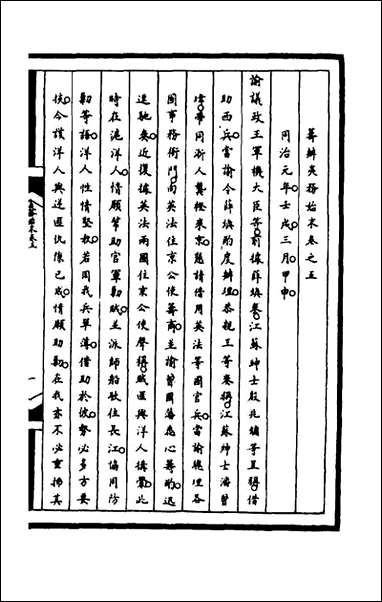 籌辦夷務始末卷之五
同治元年壬戌三月甲申
諭議政王軍機大臣等前據薛煥奏江蘇紳士殷兆鏞等呈稱借
助西兵當諭令薛煥酌度辦理恭親王等奏稱江蘇紳士潘曾
瑋帶同浙人龔橙來京懇請借用英法等國官兵當諭總理各
國事務衙門向英法住京公使籌商並諭曾國藩悉心籌酌迅
速馳奏近復據英法兩國住京公使聲稱賊匪與洋人構釁此
時在滬洋人情願幫助官軍勦賊並派師船駛往長江協同防
勦等語洋人性情堅執若因我兵單薄借助於彼勢必多方要
挾今該洋人與逆匪仇隙已成情願助勦在我亦不必重拂其